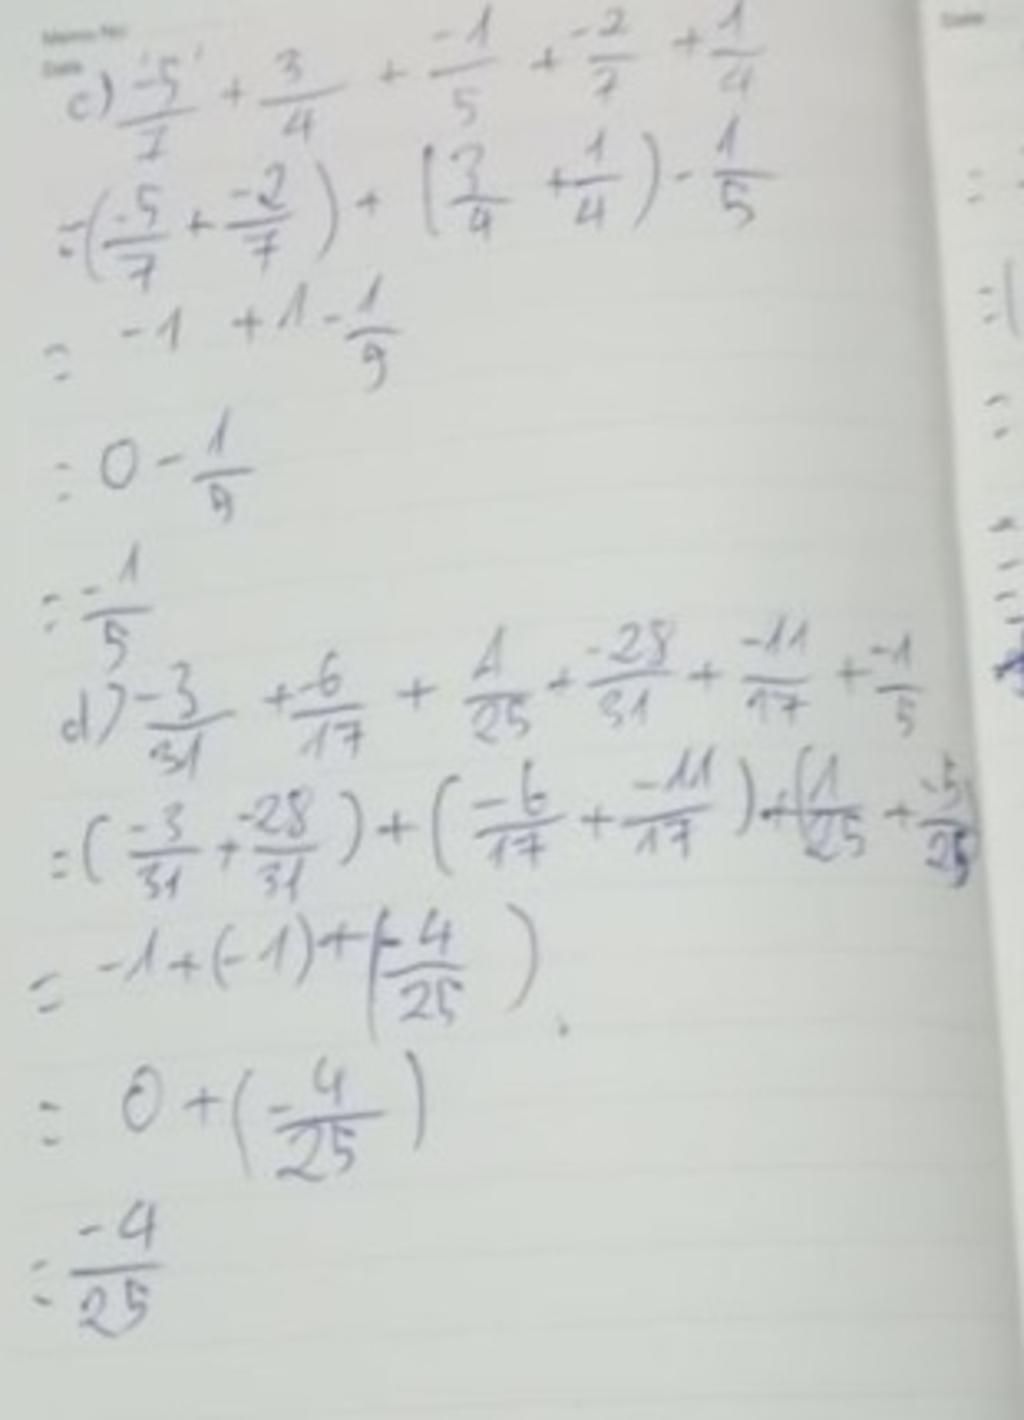 Memo No.
Date
Date
c) -5/7 + 3/4 + -1/5 + -2/7 + 1/4
= (-5/7 + -2/7) + (3/4 + 1/4) - 1/5
= -1 + 1 - 1/5
= 0 - 1/5
= -1/5
d) -3/31 + -6/17 + 1/25 + -28/31 + -11/17 + -1/5
= (-3/31 + -28/31) + (-6/17 + -11/17) + (1/25 + -5/25)
= -1 + (-1) + (-4/25)
= 0 + (-4/25)
= -4/25